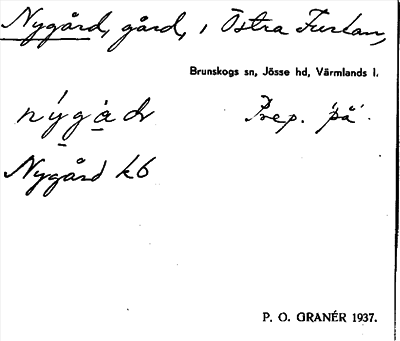 Nygård, gård, i Östra Furtan,
Brunskogs sn, Jösse hd, Värmlands l.
nýgàdr Prep. 'på'.
Nygård kb
P. O. GRANÉR 1937.